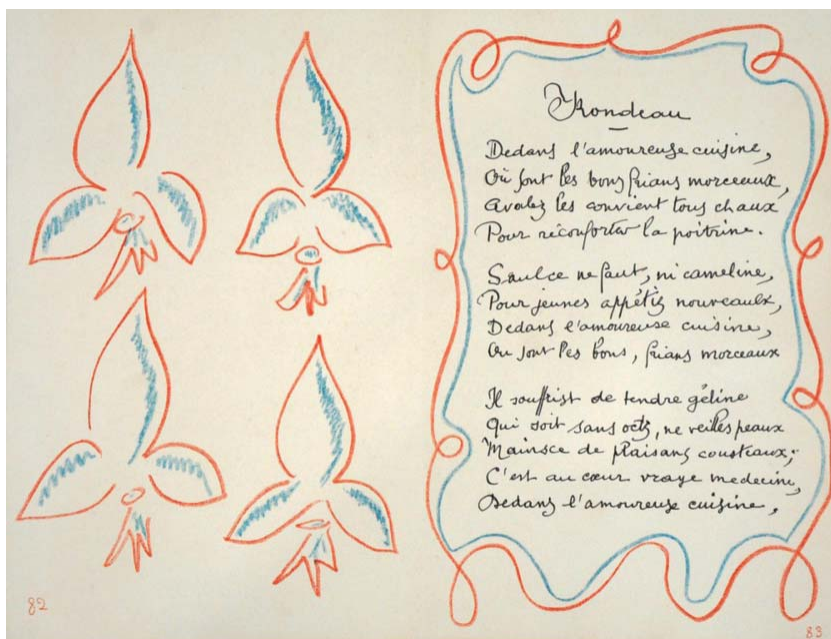 Rondeau
Dedans l'amoureuse cuisine,
Où sont les bons frians morceaux,
Avalez les convient tous chaux
Pour réconforter la poitrine.
Saulce ne faut, ni cameline,
Pour jeunes appétiz nouveaulx,
Dedans l'amoureuse cuisine,
Ou sont les bons, frians morceaux
Il souffist de tendre géline
Qui soit sans octz, ne veilles peaux
Mainsce de plaisans cousteaux;
C'est au cœur vraye medecine,
Dedans l'amoureuse cuisine,
82
83